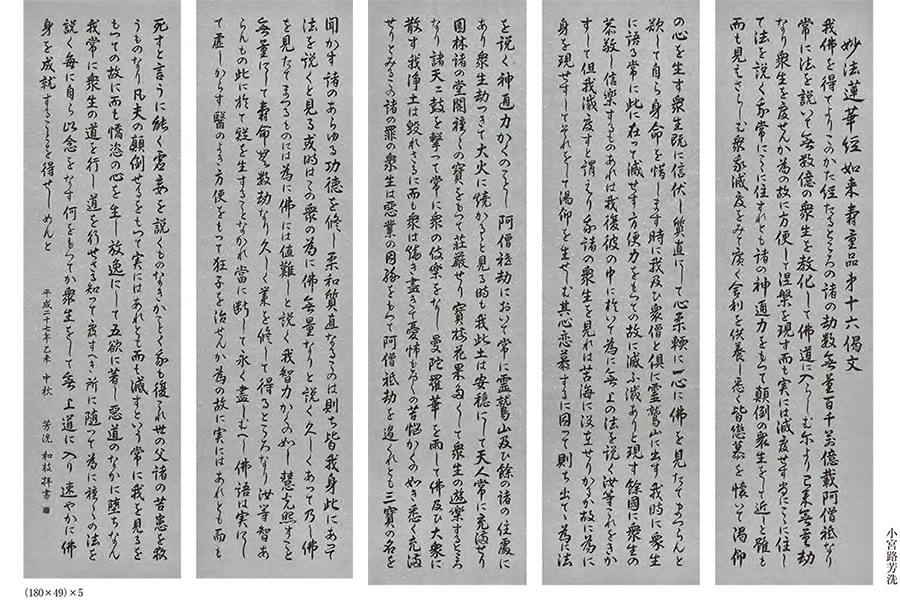 妙法蓮華経如来寿量品第十六偈文
我佛を得てよりこのかた経たるところの諸の劫数無量百千萬億載阿僧祇なり
常に法を説いて無数億の衆生を教化して佛道に入らしむ尓より已来無量劫
なり衆生を度せんか為の故に方便して涅槃を現す而も実には滅度せす常にここに住し
て法を説く我常にここに住すれとも諸の神通力をもって顛倒の衆生をして近しと雖も
而も見えさらしむ衆我滅度をみて廣く舎利を供養し悉く皆恋慕を懐いて渇仰
の心を生す衆生既に信伏し質直にして心柔輭に一心に佛を見たてまつらんと
欲して自ら身命を惜します時に我及ひ衆僧と倶に霊鷲山に出す我時に衆生
に語る常に此に在って滅せす方便力をもっての故に滅不滅ありと現す餘國に衆生の
恭敬し信楽するものあれは我復彼の中に於いて為に無上の法を説く汝等これをきか
すして但我滅度すと謂へり我諸の衆生を見れは苦海に没在せりかるか故に為に
身を現せすしてそれをして渇仰を生せしむ其心恋慕するに因って則ち出てて為に法
を説く神通力かくのことし阿僧祇劫において常に霊鷲山及ひ餘の諸の住處に
あり衆生劫つきて大火に焼かるると見る時も我此土は安穏にして天人常に充満せり
園林諸の堂閣種々の寶をもって荘厳せり寶樹花果多くして衆生の遊楽するところ
なり諸天天鼓を撃って常に衆の伎楽をなし曼陀羅華を雨して佛及ひ大衆に
散す我浄土は毀れさるに而も衆は焼き盡きて憂怖もろもろの苦悩かくの如き悉く充満
せりとみるこの諸の罪の衆生は悪業の因縁をもって阿僧祇劫を過くれとも三寶の名を
聞かす諸のあらゆる功徳を修し柔和質直なるものは則ち皆我身此にあって
法を説くと見る或時はこの衆の為に佛寿無量なりと説く久しくあって乃し佛
を見たてまつるものには為に佛には値難しと説く我智力かくの如し慧光照すこと
無量にして寿命無数劫なり久しく業を修して得るところなり汝等智あ
らんもの此に於て疑を生することなかれ當に断して永く盡しむへし佛語は実にし
て虚しからす醫のよき方便をもって狂子を治せんか為の故に実にはあれとも而も
死すと言うに能く虚妄を説くものなきかことく我も復これ世の父諸の苦患を救
うものなり凡夫の顛倒せるをもって実にはあれとも而も滅すという常に我を見るを
もっての故に而も憍恣の心を生し放逸にして五欲に著し悪道のなかに堕ちなん
我常に衆生の道を行し道を行せさる知って度すへき所に随って為に種々の法を
説く毎に自ら以念をなす何をもってか衆生をして無上道に入り速やかに佛
身を成就することを得せしめんと
平成二十七年乙未 中秋 芳洗 和枝拝書
小宮路芳洗
(180×49)×5